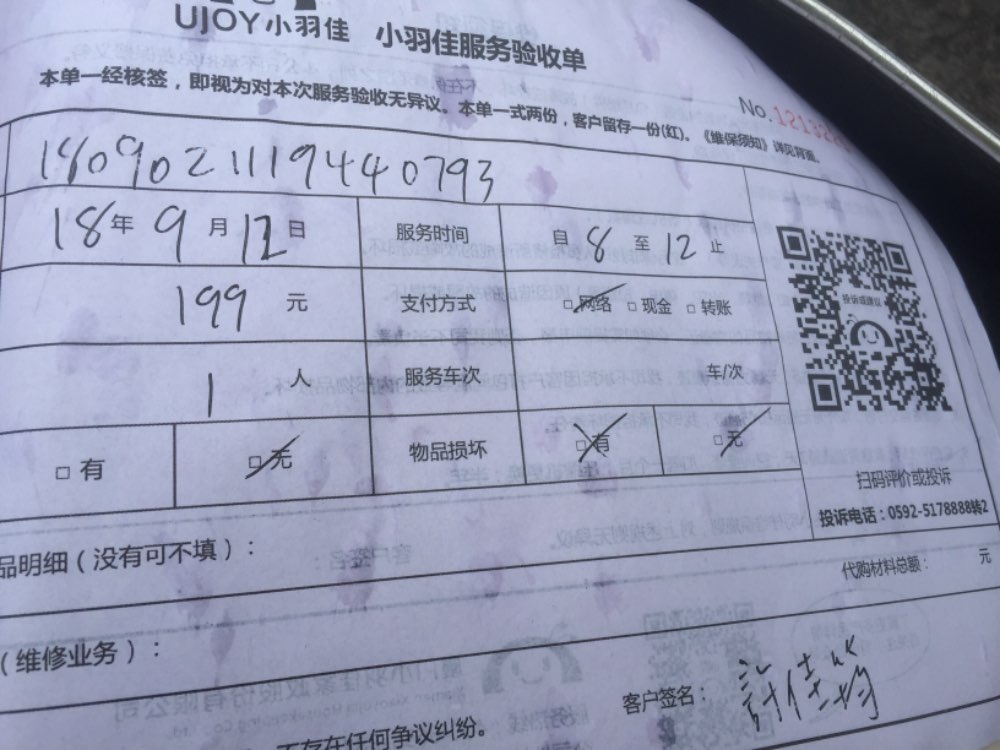 UJOY小羽佳 小羽佳服务验收单
本单一经核签，即视为对本次服务验收无异议。本单一式两份，客户留存一份(红)。《维保须知》详见背面。
No.
1809021119440793
18年 9月 12日 服务时间 自 8 至 12 止
199 元 支付方式 □网络 □现金 □转账
投诉或建议
1 人 服务车次 车/次
□ 有 □无 物品损坏 □有 □无
扫码评价或投诉
投诉电话：0592-5178888转2
品明细（没有可不填）：
代购材料总额： 元
（维修业务）：
客户签名：
不存在任何争议纠纷。